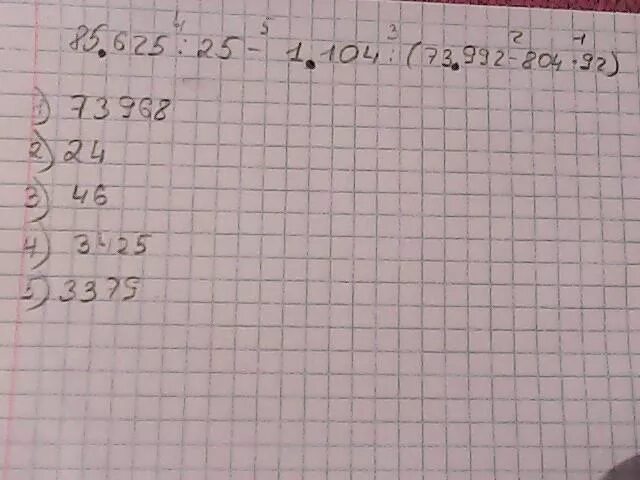 4 5 3 2 1
85.625 : 25 - 1.104 : (73.992 - 804 · 92)
1) 73968
2) 24
3) 46
4) 3425
5) 3379